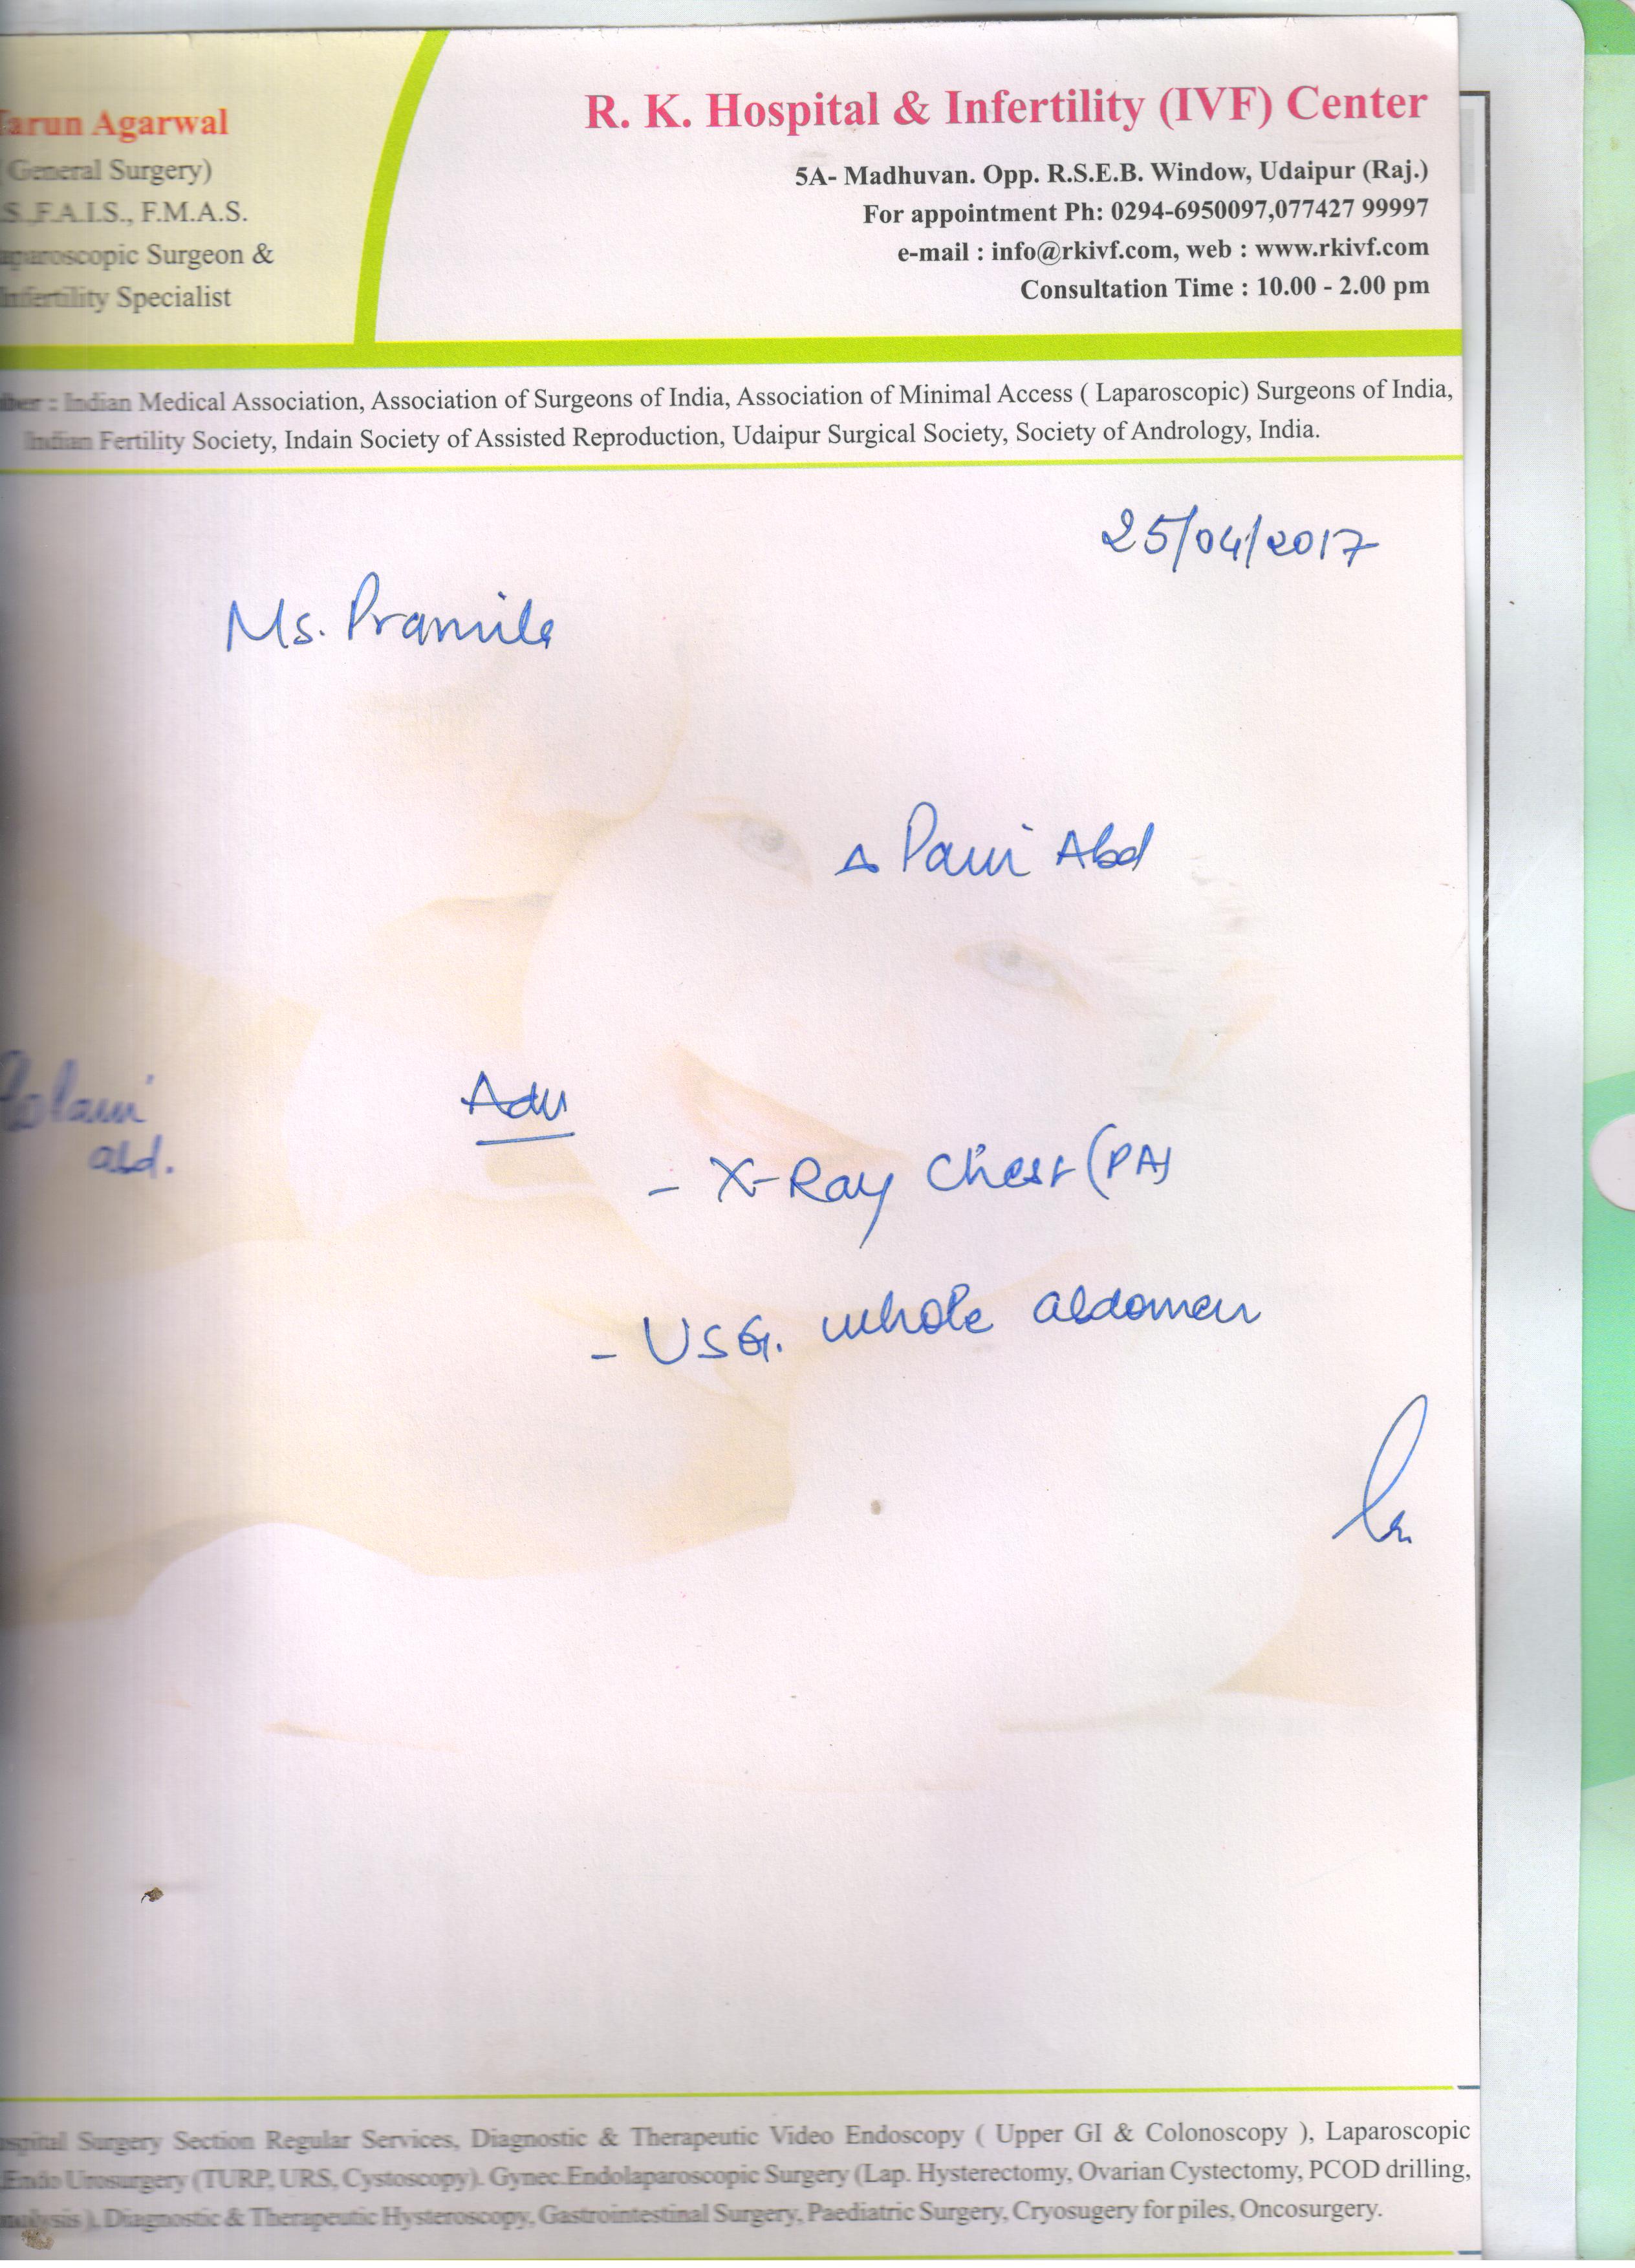 arun Agarwal
R. K. Hospital & Infertility (IVF) Center
(General Surgery)
S.,F.A.I.S., F.M.A.S.
aparoscopic Surgeon &
Infertility Specialist
5A- Madhuvan. Opp. R.S.E.B. Window, Udaipur (Raj.)
For appointment Ph: 0294-6950097,077427 99997
e-mail : info@rkivf.com, web : www.rkivf.com
Consultation Time : 10.00 - 2.00 pm
ber : Indian Medical Association, Association of Surgeons of India, Association of Minimal Access ( Laparoscopic) Surgeons of India,
Indian Fertility Society, Indain Society of Assisted Reproduction, Udaipur Surgical Society, Society of Andrology, India.
25/04/2017
Ms. Pramila
Δ Pain Abd
abd.
Adv
- X-Ray Chest (PA)
- USG. whole abdomen
spital Surgery Section Regular Services, Diagnostic & Therapeutic Video Endoscopy ( Upper GI & Colonoscopy ), Laparoscopic
Endo Urosurgery (TURP, URS, Cystoscopy). Gynec.Endolaparoscopic Surgery (Lap. Hysterectomy, Ovarian Cystectomy, PCOD drilling,
), Diagnostic & Therapeutic Hysteroscopy, Gastrointestinal Surgery, Paediatric Surgery, Cryosugery for piles, Oncosurgery.